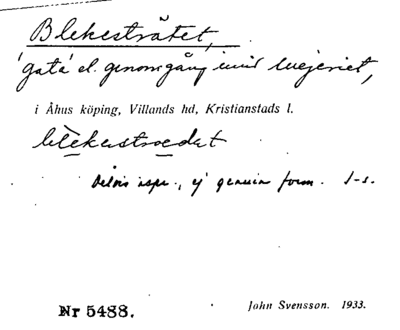 Blekesträtet,
'gata' el. genomgång invid mejeriet,
i Åhus köping, Villands hd, Kristianstads l.
blèkestrædet
Delvis uspr., ej genuin form. S-s.
Nr 5488. John Svensson. 1933.